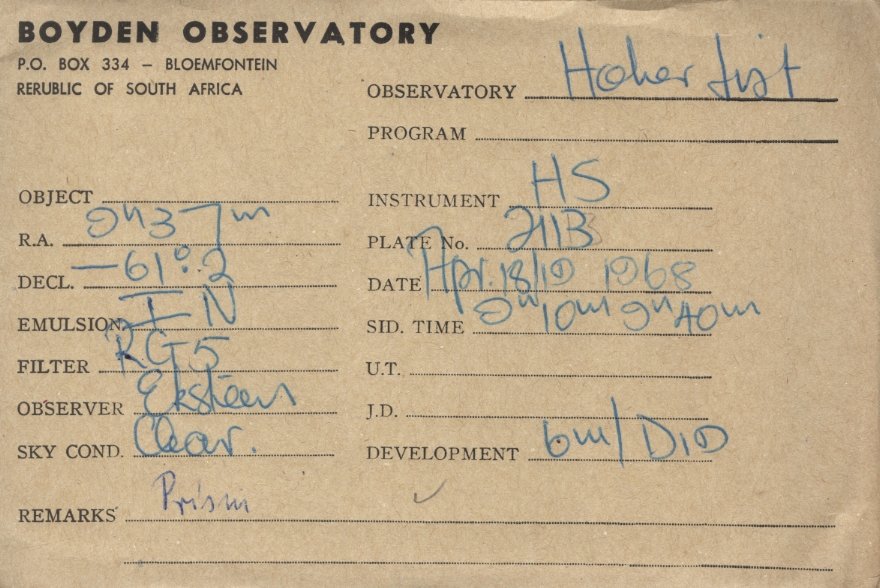 BOYDEN OBSERVATORY
P.O. BOX 334 – BLOEMFONTEIN
RERUBLIC OF SOUTH AFRICA
OBSERVATORY Hoher List
PROGRAM
OBJECT
INSTRUMENT HS
R.A. 9h37m
PLATE No. 2113
DECL. –61°.2
DATE Apr. 18/19 1968
EMULSION I N
SID. TIME 9h10m 9h40m
FILTER RG5
U.T.
OBSERVER Eksteen
J.D.
SKY COND. Clear.
DEVELOPMENT 6m/D19
REMARKS Prism